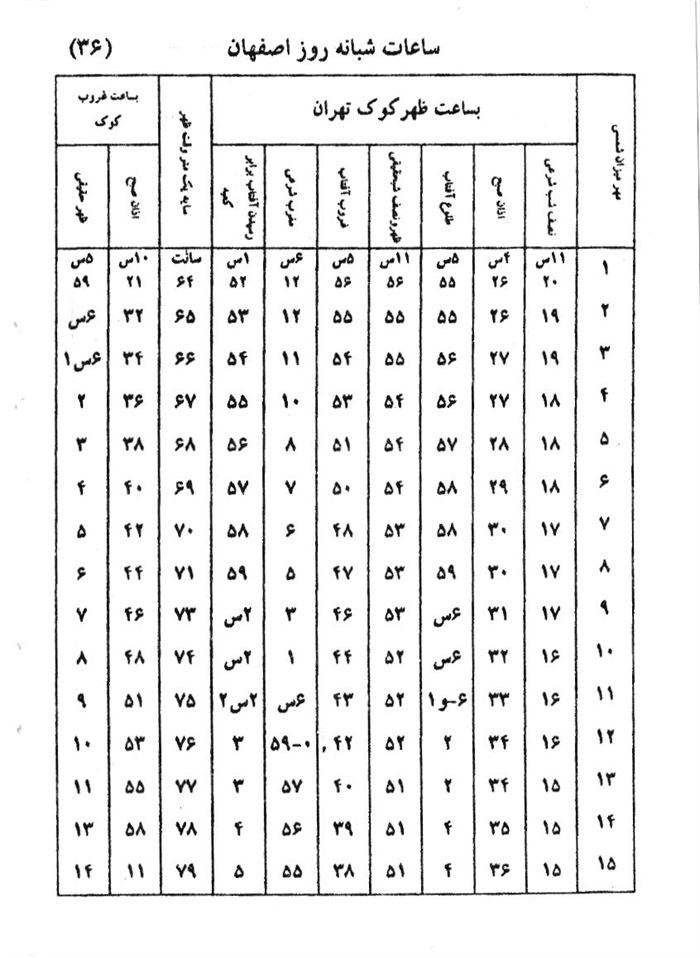 ساعات شبانه روز اصفهان (۳۶)
مهر میزان شمسی بساعت ظهر کوک تهران سایه یک متر وقت ظهر بساعت غروب کوک
نصف شب شرعی اذان صبح طلوع آفتاب ظهر و نصف شبحقیقی غروب آفتاب مغرب شرعی رسیدن آفتاب برابر کعبه اذان صبح ظهر حقیقی
۱ ۱۱س ۴س ۵س ۱۱س ۵س ۶س ۱س سانت ۱۰س ۵س
۲۰ ۲۶ ۵۵ ۵۶ ۵۶ ۱۲ ۵۲ ۶۴ ۲۱ ۵۹
۲ ۱۹ ۲۶ ۵۵ ۵۵ ۵۵ ۱۲ ۵۳ ۶۵ ۳۲ ۶س
۳ ۱۹ ۲۷ ۵۶ ۵۵ ۵۴ ۱۱ ۵۴ ۶۶ ۳۴ ۶س۱
۴ ۱۸ ۲۷ ۵۶ ۵۴ ۵۳ ۱۰ ۵۵ ۶۷ ۳۶ ۲
۵ ۱۸ ۲۸ ۵۷ ۵۴ ۵۱ ۸ ۵۶ ۶۸ ۳۸ ۳
۶ ۱۸ ۲۹ ۵۸ ۵۴ ۵۰ ۷ ۵۷ ۶۹ ۴۰ ۴
۷ ۱۷ ۳۰ ۵۸ ۵۳ ۴۸ ۶ ۵۸ ۷۰ ۴۲ ۵
۸ ۱۷ ۳۰ ۵۹ ۵۳ ۴۷ ۵ ۵۹ ۷۱ ۴۴ ۶
۹ ۱۷ ۳۱ ۶س ۵۳ ۴۶ ۳ ۲س ۷۳ ۴۶ ۷
۱۰ ۱۶ ۳۲ ۶س ۵۲ ۴۴ ۱ ۲س ۷۴ ۴۸ ۸
۱۱ ۱۶ ۳۳ ۶-و۱ ۵۲ ۴۳ ۶س ۲س۲ ۷۵ ۵۱ ۹
۱۲ ۱۶ ۳۴ ۲ ۵۲ ۴۲ ۵۹-۰ ۳ ۷۶ ۵۳ ۱۰
۱۳ ۱۵ ۳۴ ۲ ۵۱ ۴۰ ۵۷ ۳ ۷۷ ۵۵ ۱۱
۱۴ ۱۵ ۳۵ ۴ ۵۱ ۳۹ ۵۶ ۴ ۷۸ ۵۸ ۱۳
۱۵ ۱۵ ۳۶ ۴ ۵۱ ۳۸ ۵۵ ۵ ۷۹ ۱۱ ۱۴